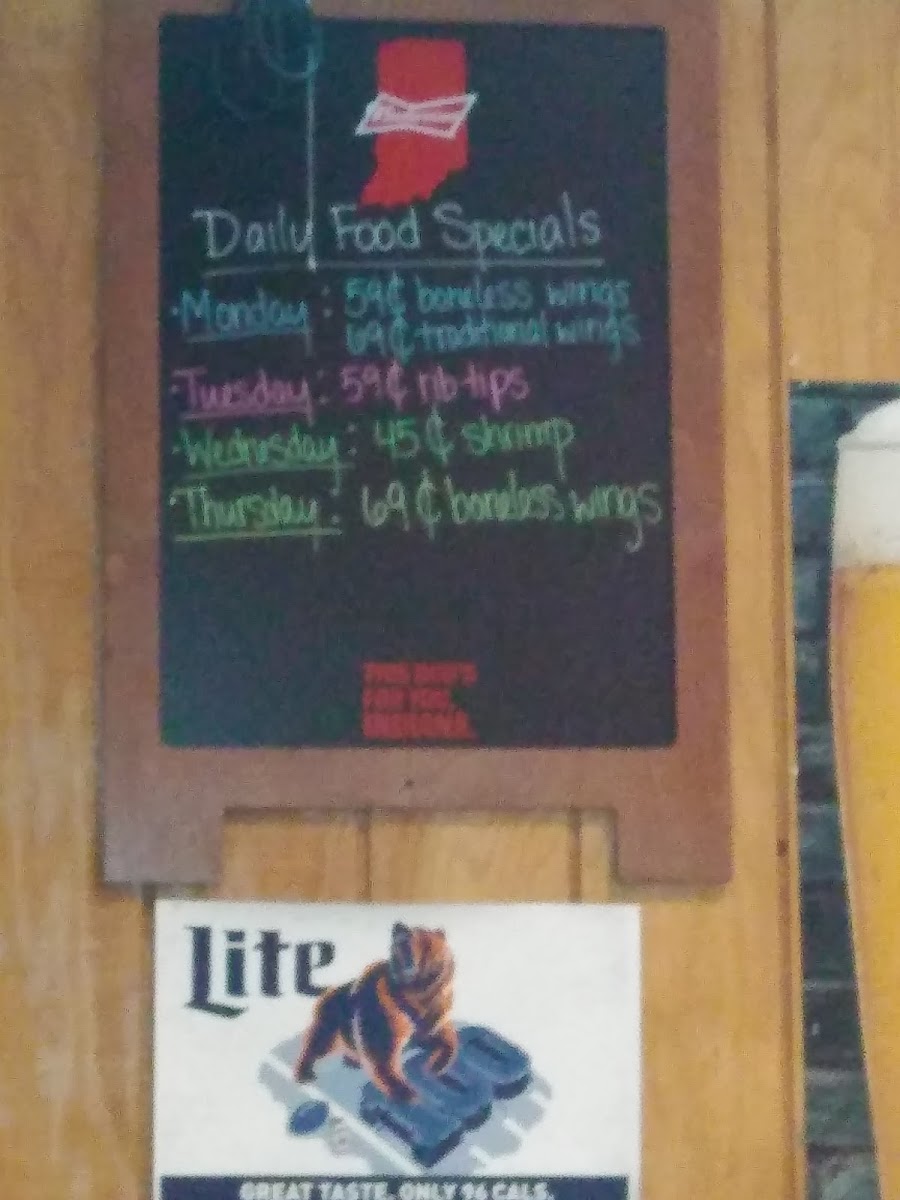 Daily Food Specials
·Monday: 59¢ boneless wings
69¢ traditional wings
·Tuesday: 59¢ rib tips
·Wednesday: 45¢ shrimp
·Thursday: 69¢ boneless wings
THIS BUD'S
FOR YOU,
INDIANA.
Lite
100
GREAT TASTE. ONLY 96 CALS.